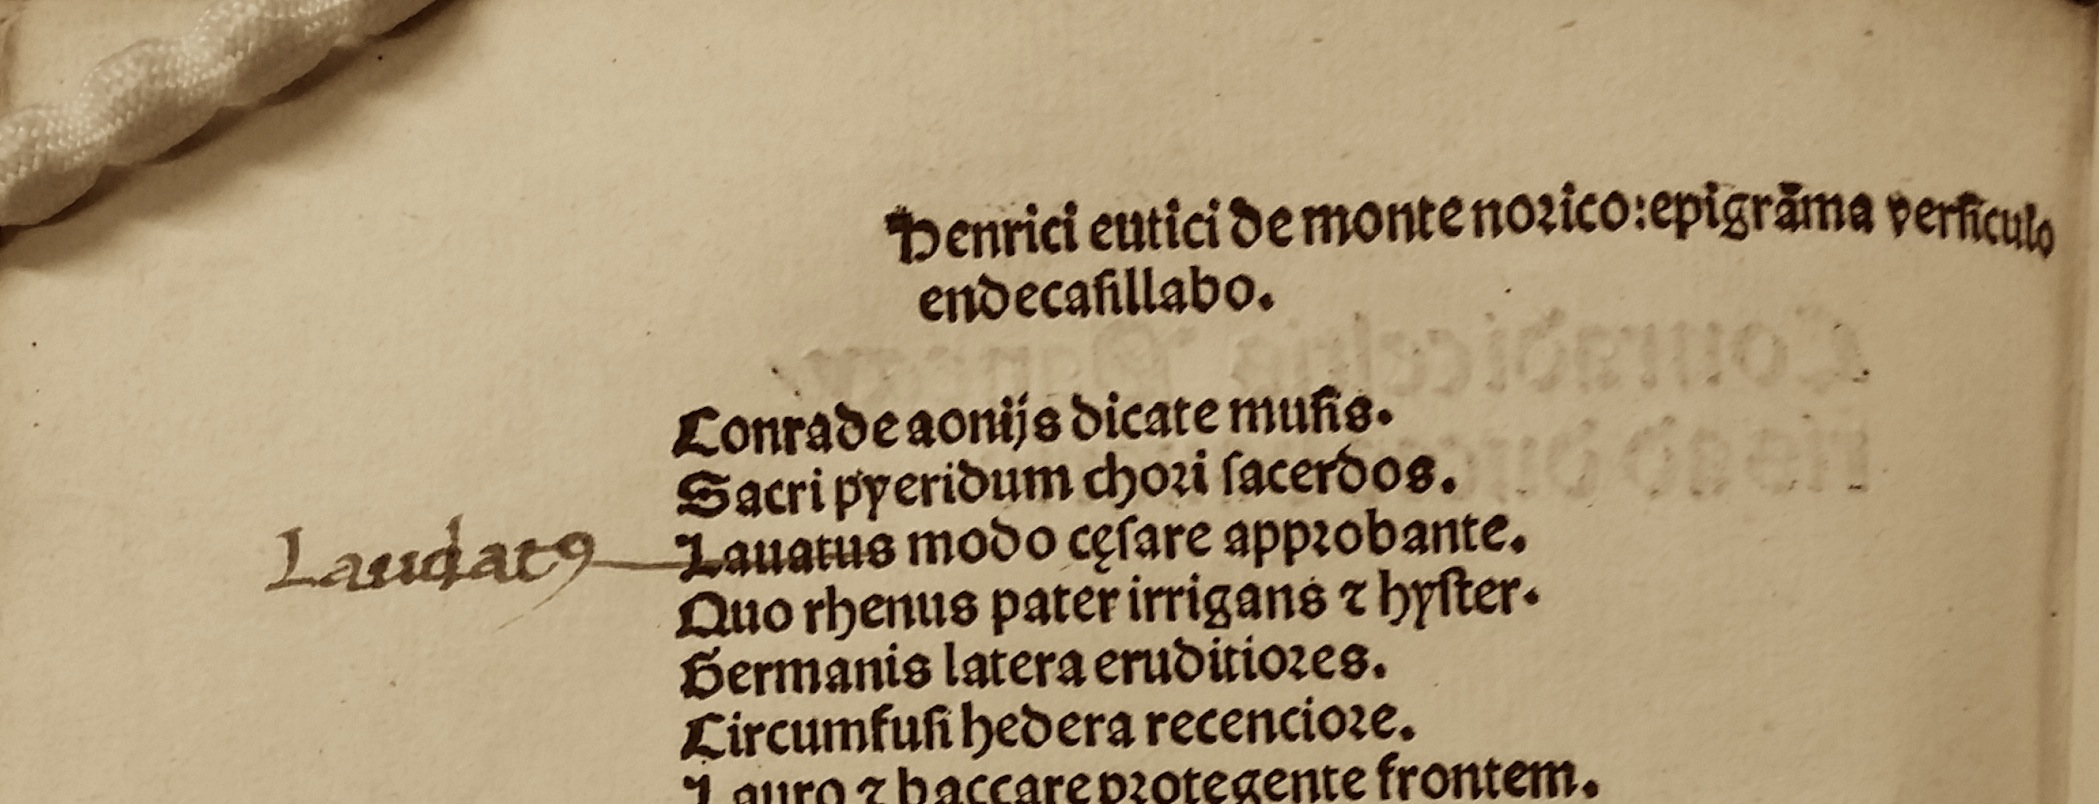 Henrici eutici de monte norico: epigrāma versiculo
endecasillabo.
Conrade aonijs dicate musis.
Sacri pyeridum chori sacerdos.
Laudatꝯ
Lauatus modo cęsare approbante.
Quo rhenus pater irrigans ⁊ hyster.
Germanis latera eruditiores.
Circumfusi hedera recenciore.
Lauro ⁊ baccare protegente frontem.